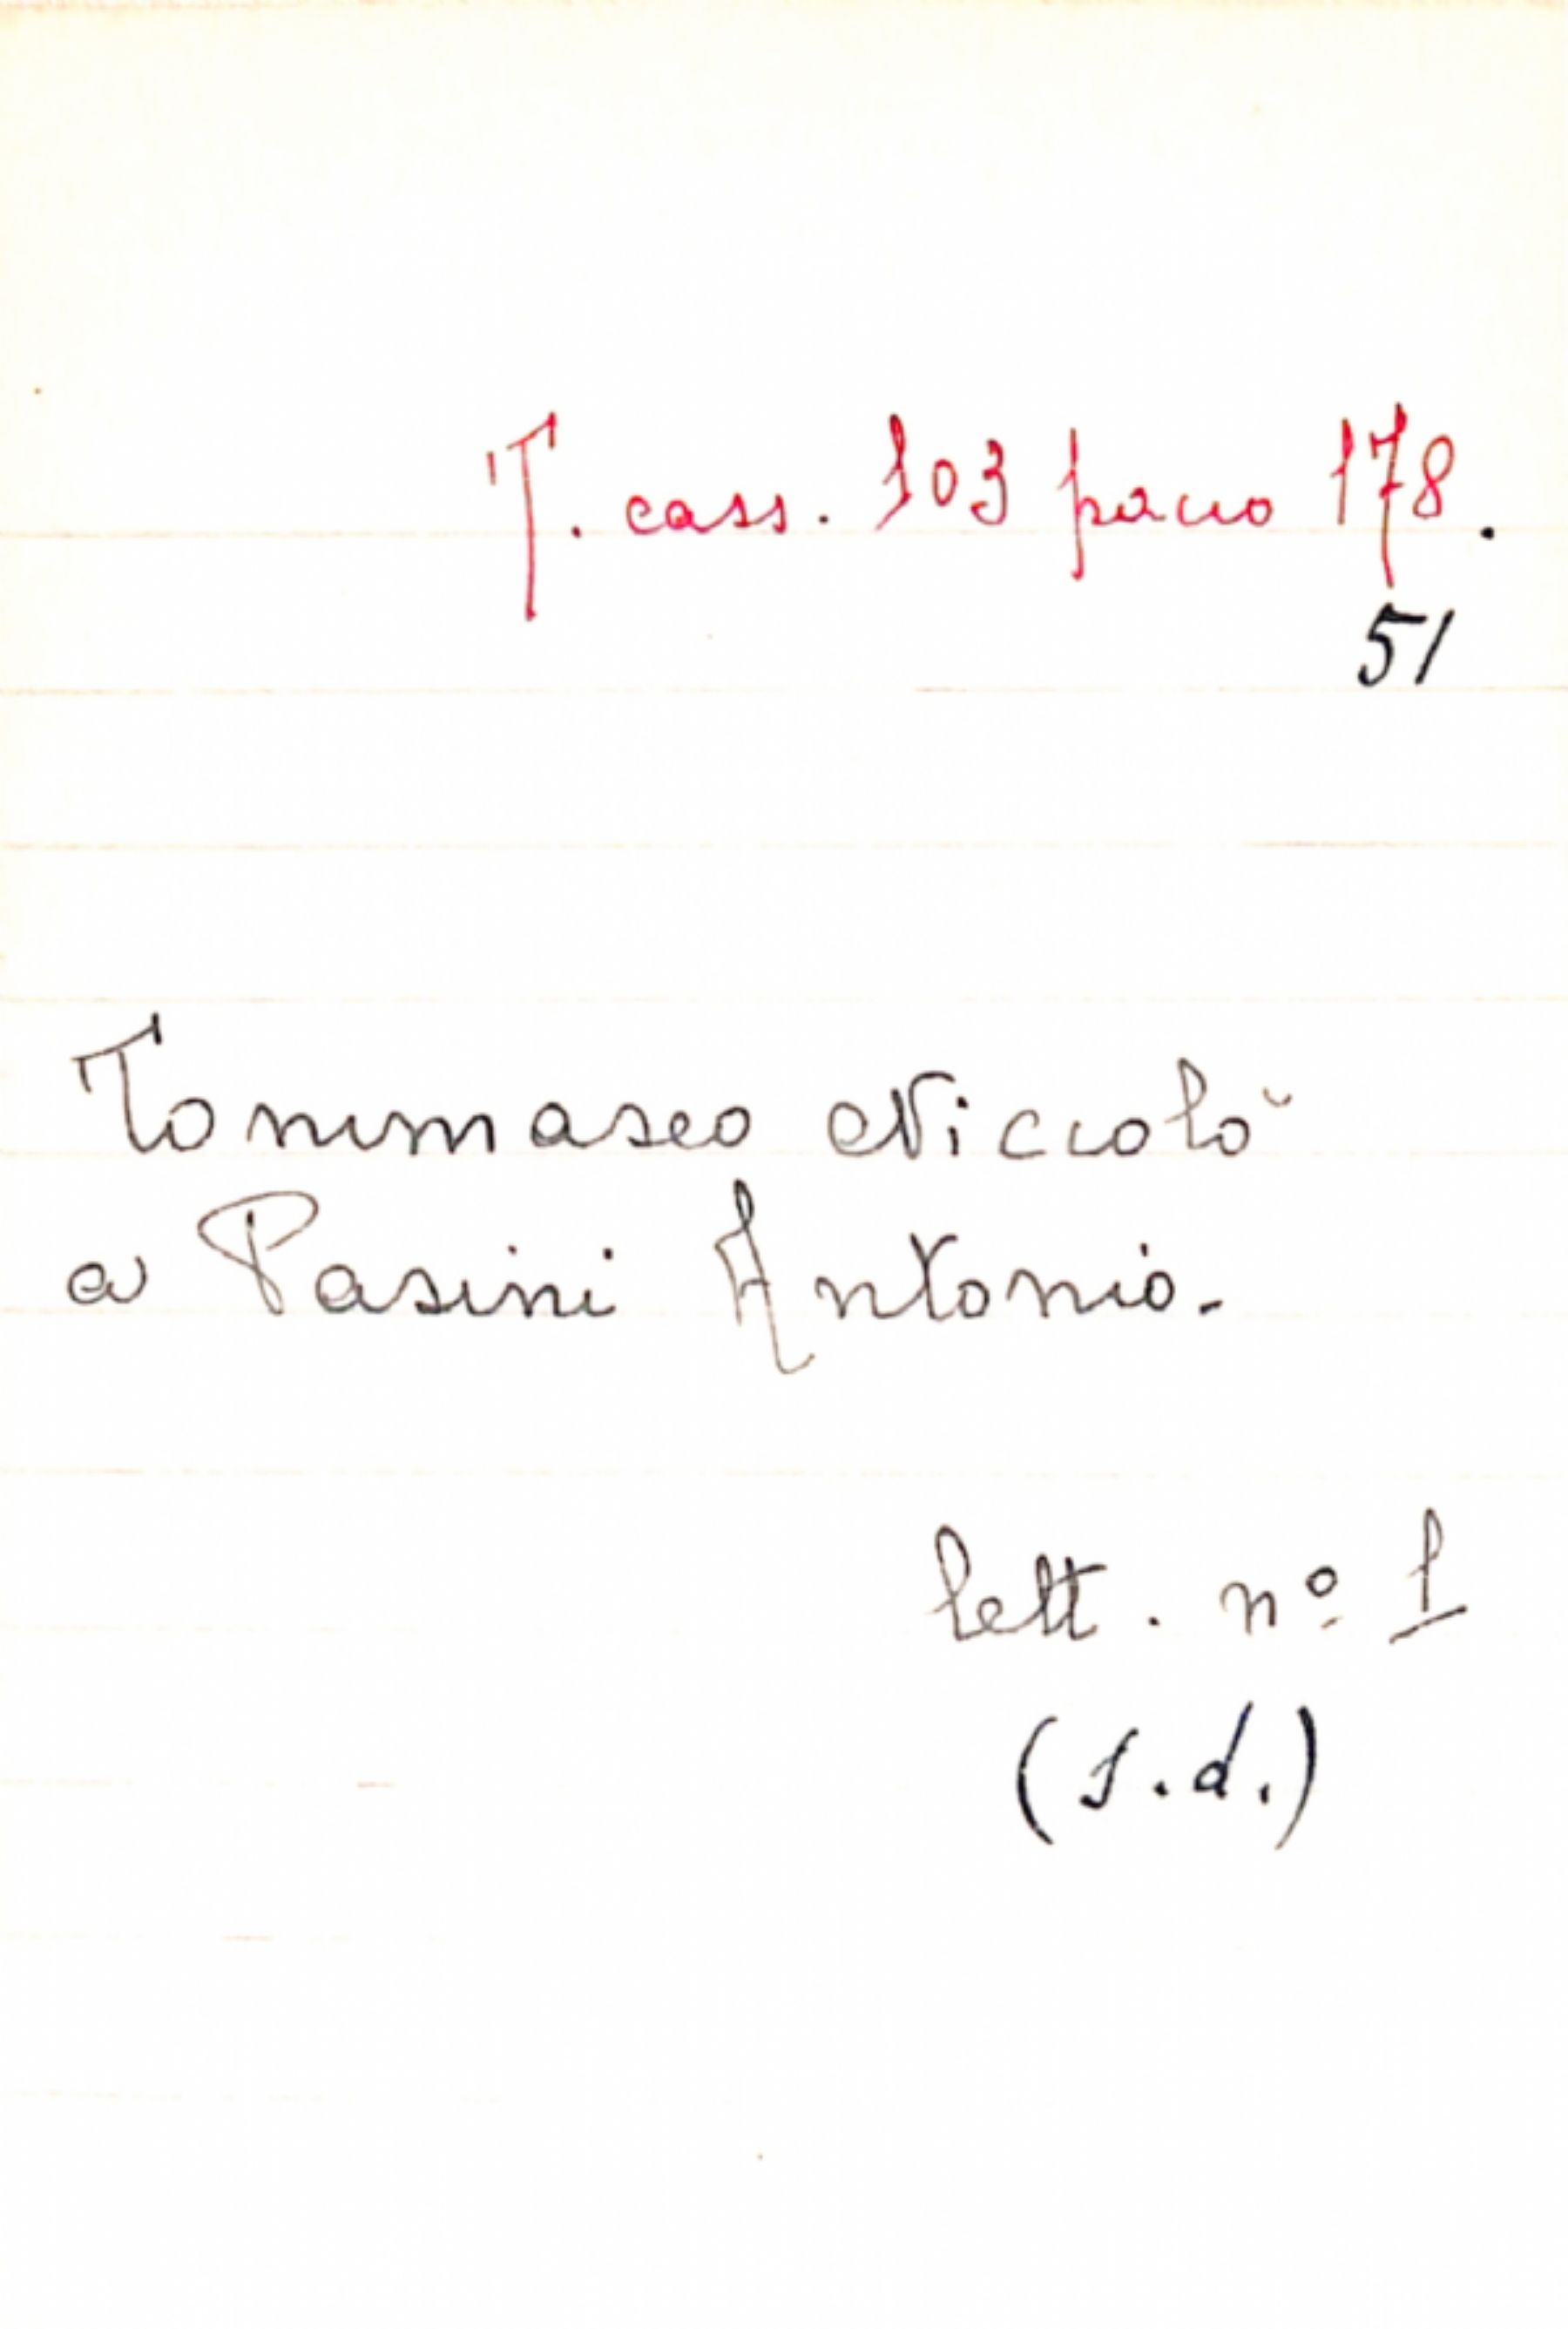 T. cass. 103 pacco 178.
51
Tommaseo Niccolò
a Pasini Antonio.
lett. nº 1
(s.d.)